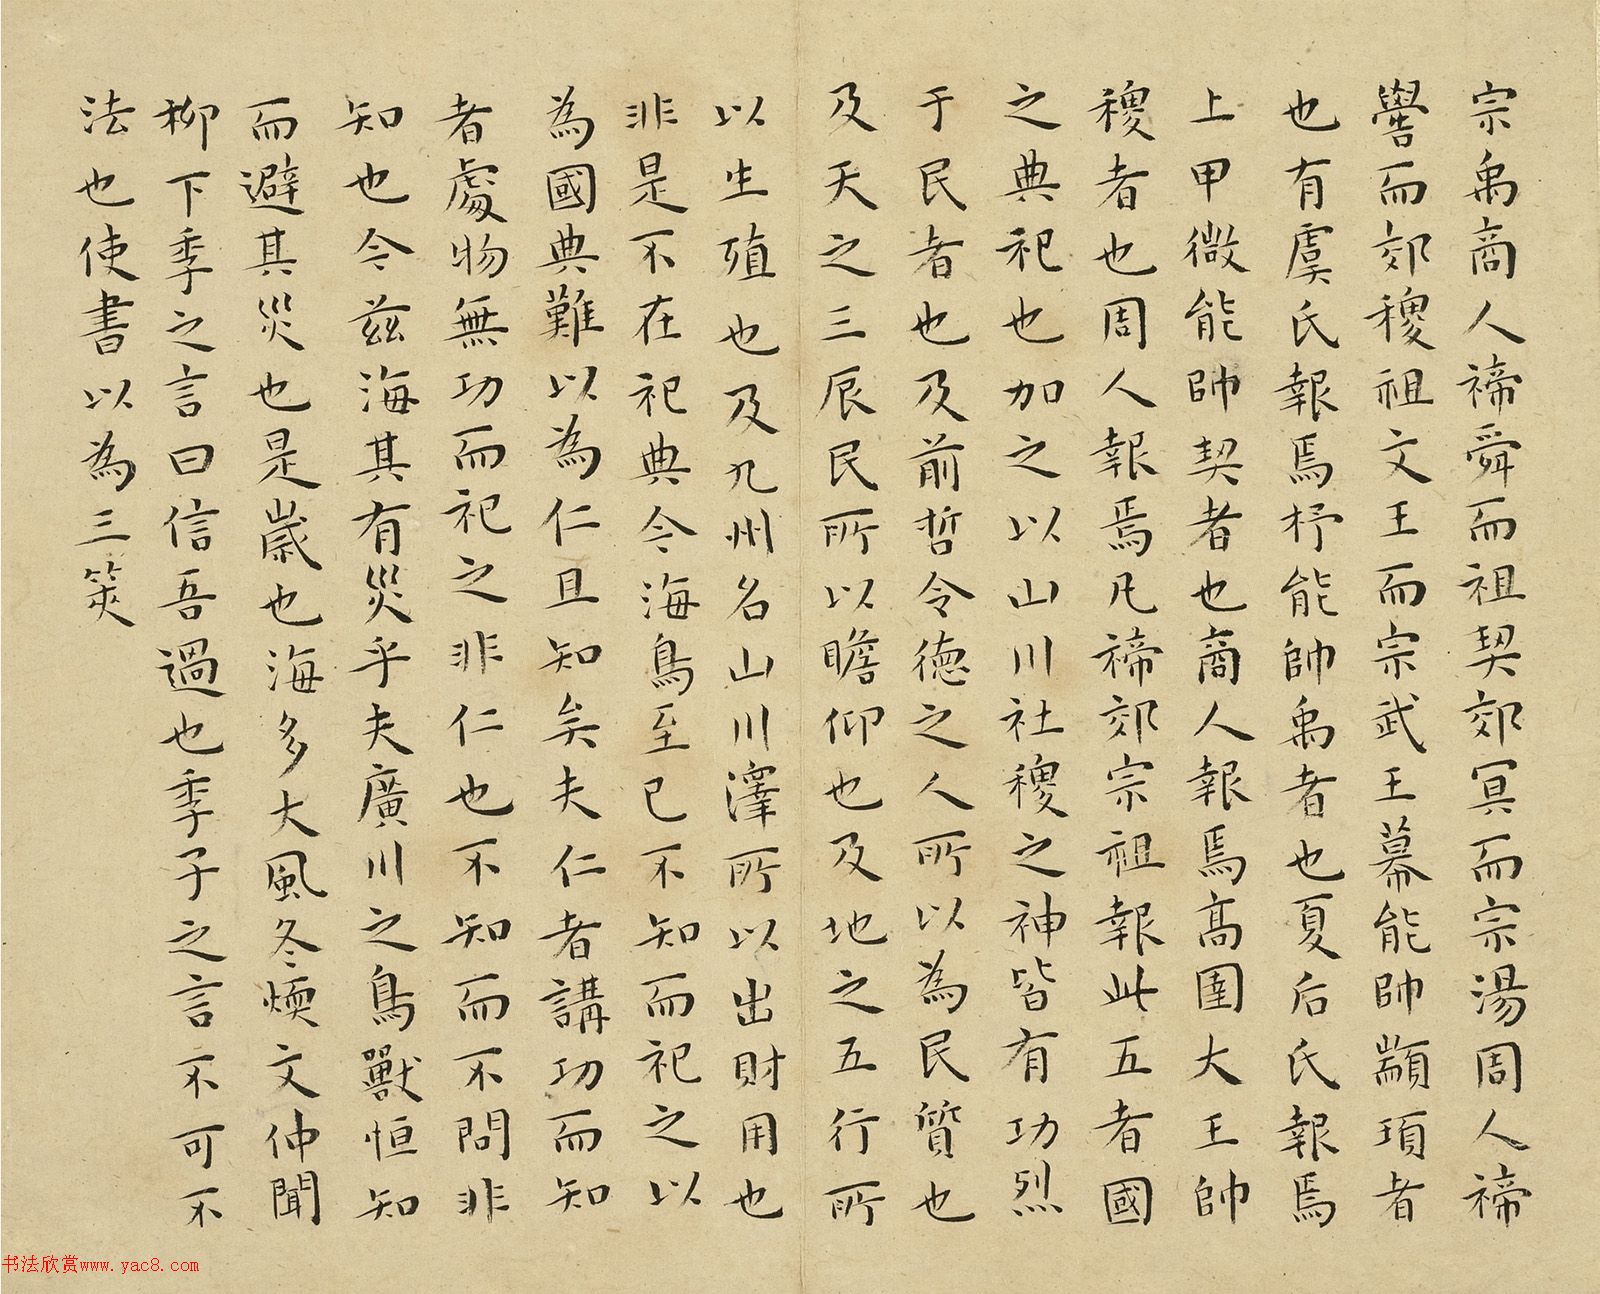 宗禹商人禘舜而祖契郊冥而宗湯周人禘
嚳而郊稷祖文王而宗武王幕能帥顓頊者
也有虞氏報焉杼能帥禹者也夏后氏報焉
上甲微能帥契者也商人報焉高圉大王帥
稷者也周人報焉凡禘郊宗祖報此五者國
之典祀也加之以山川社稷之神皆有功烈
于民者也及前哲令德之人所以為民質也
及天之三辰民所以瞻仰也及地之五行所
以生殖也及九州名山川澤所以出財用也
非是不在祀典今海鳥至己不知而祀之以
為國典難以為仁且知矣夫仁者講功而知
者處物無功而祀之非仁也不知而不問非
知也今茲海其有災乎夫廣川之鳥獸恒知
而避其災也是歲也海多大風冬煖文仲聞
柳下季之言曰信吾過也季子之言不可不
法也使書以為三筴
书法欣赏www.yac8.com